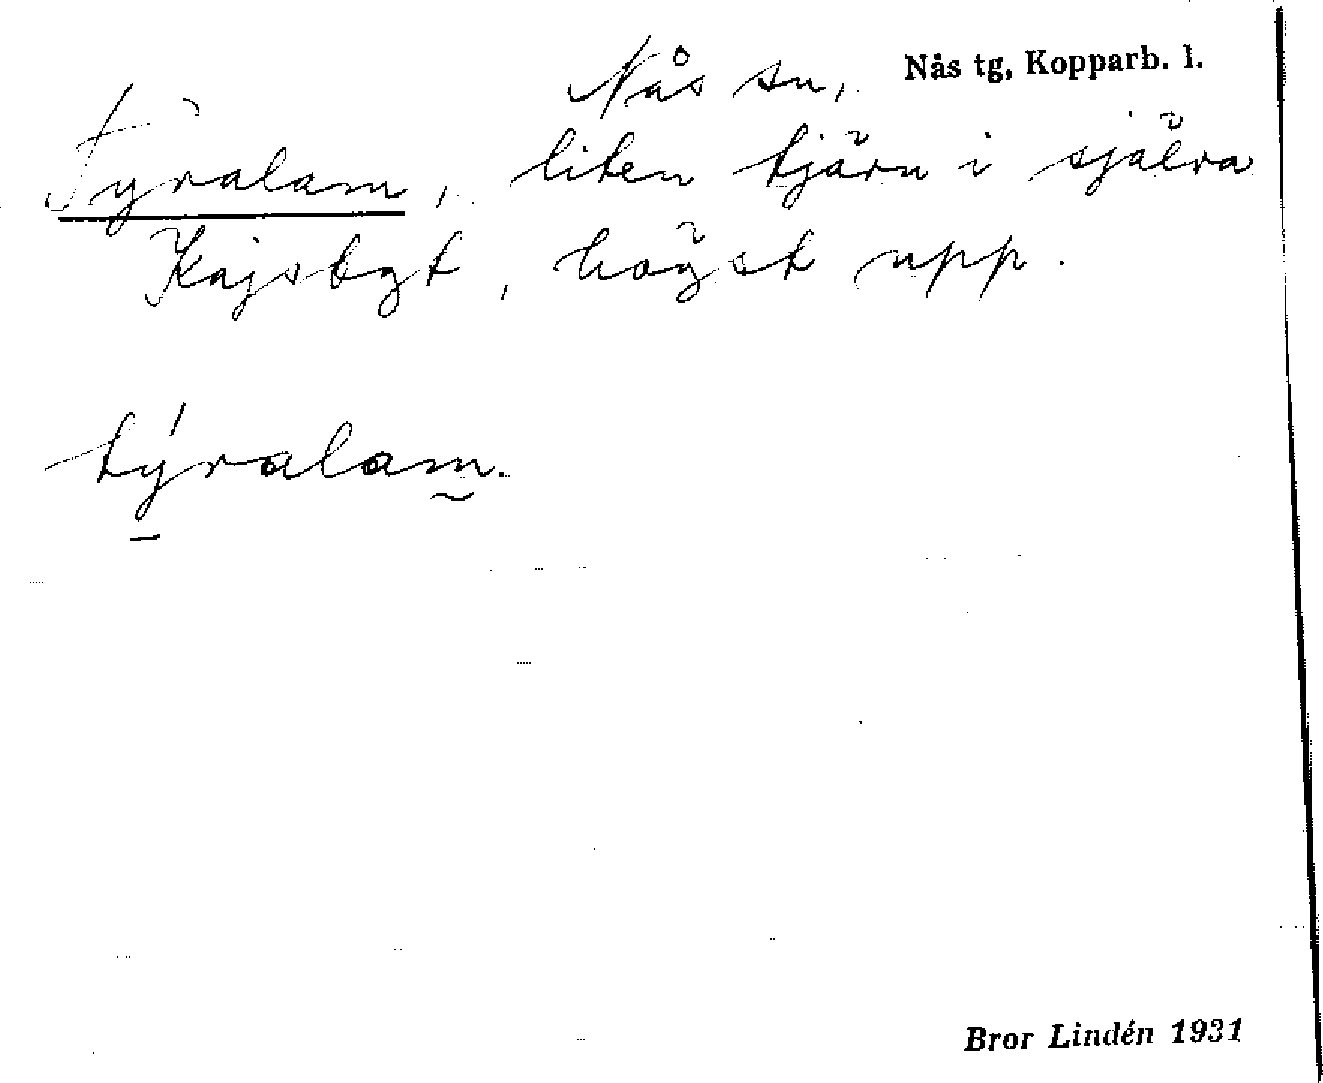 Nås sn, Nås tg, Kopparb. l.
Tyralam, liten tjärn i själva
högst upp.
týralam.
Bror Lindén 1931